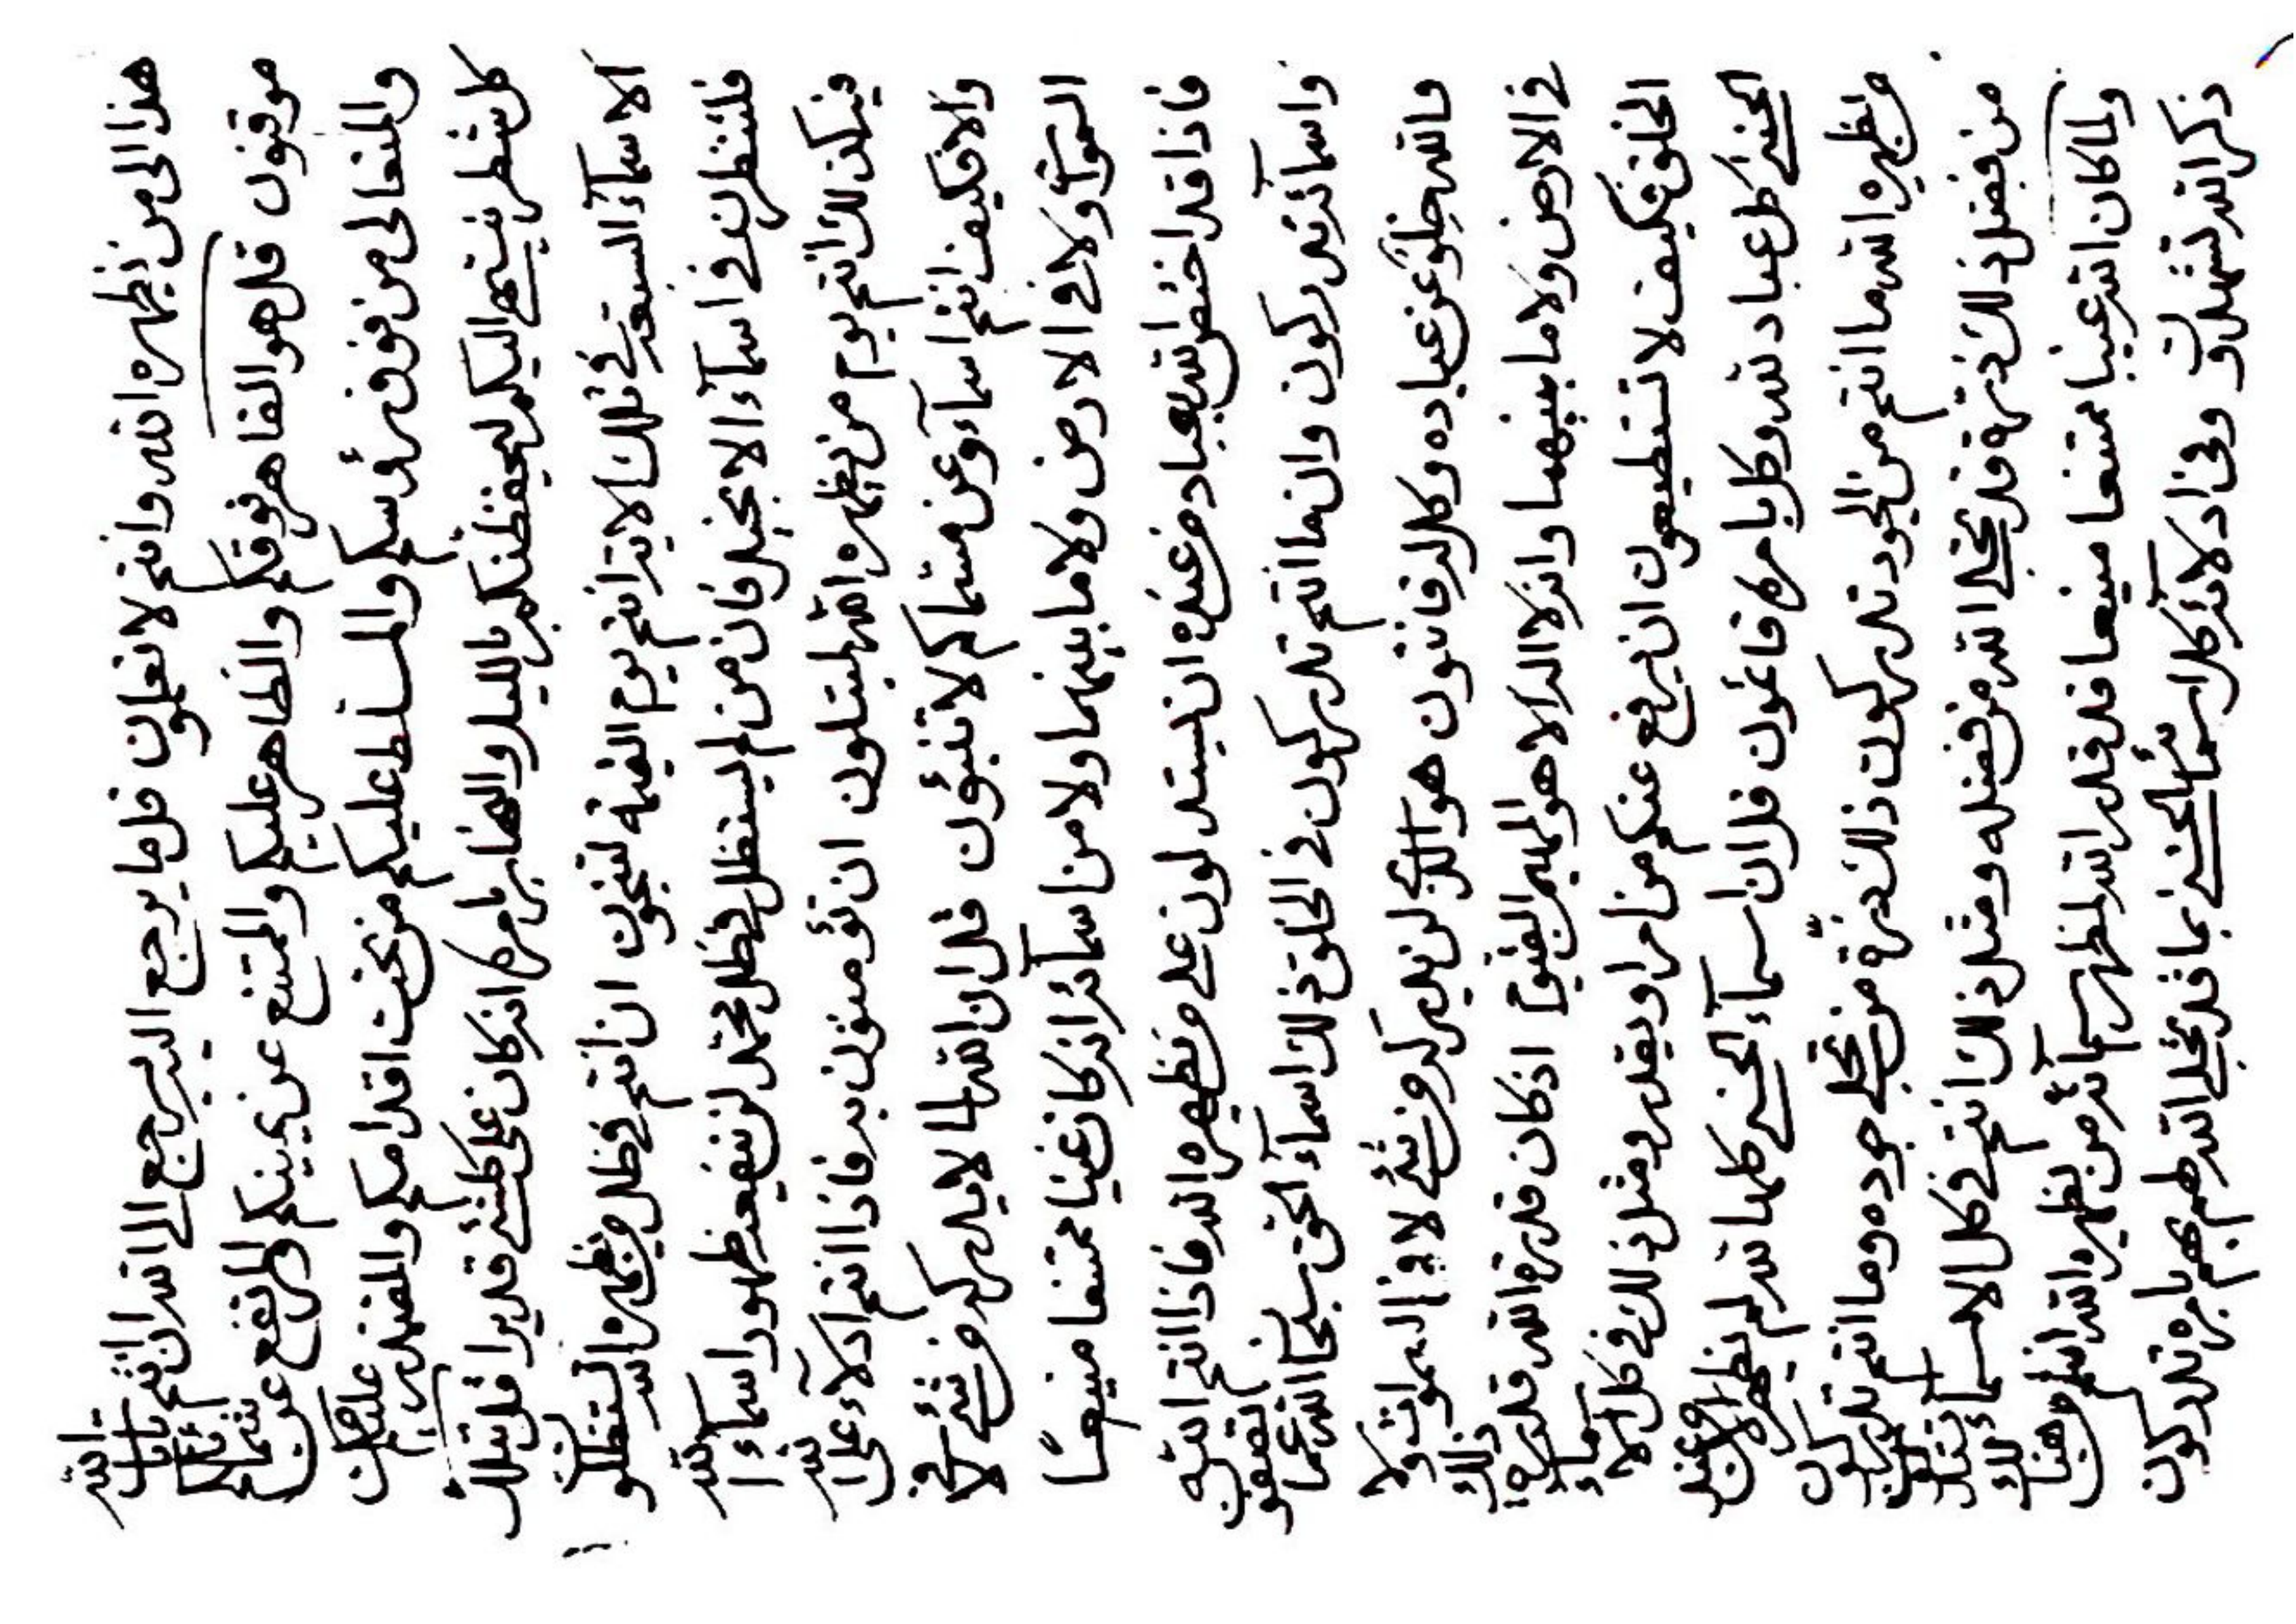 هذا الى من نظهره الله وانتم لا تعلمون قل ما يرجع اليه يرجع الى الله ان انتم بايات الله
موقنون قل هو القاهر فوقكم والظاهر عليكم والممتنع عن يمينكم والمرتفع عن شمائلكم
والمتعالى من فوق رؤسكم والمسلط عليكم من تحت اقدامكم والمقتدر عليكم
كل شطر ينتهى اليكم ليحفظنكم بالليل والنهار بامره انه كان على كلشئ قديرا قل تلك
الاسماء لستعد في تلك لايد انتم يوم القيمة لتنجون ان انتم في ظل من يظهره الله لتستظلون
فلتنظرن في اسماء الانجيل فان من لم يستظل في ظل محمد لن ينفعه ظهور اسماء الله
فيكذلك انتم يوم من يظهره الله لمبتلون ان تؤمنون به فاذا انتم ادلاء على الله
والا فكيف انتم اسماء وعن مسماكم لا تنبؤن قل ان الله لما لا يدركه من شئ لا في
السموات ولا في الارض ولا ما بينهما ولا من اسمائه انه كان غنيا ممتنعا منيعا
فاذا قد اختص الله بعباد من عنده ان يستدلون على من يظهره الله فاذا انتم الله
واسمائه تدركون وان ما انتم تدركون في الخلق ذلك اسماء الحق سبحان الله عما تصفون
فالله خلو عن عباده وكل له قانتون هو الذي لن يدركه من شئ لا في السموات ولا
في الارض ولا ما بينهما وانه لا اله الا هو المهيمن القيوم اذ كان قدرة الله قدرة ذلك
الخلق فكيف لا تستطيعون ان يرفع عنكم من امر او يقدر ومثل ذلك في كل الاسماء
الحسنى كل عباد لله وكل بامره قائمون قل ان اسماء الحسنى كلها لله لم يظهر الا من عند
من يظهره الله ما انتم من الجود تدركون ذلك ذرة من تجلي جوده وما انتم تدركون
من فضل ذلك ذرة قد تجلى الله من فضله ومثل ذلك انتم في كل الاسماء لتستدركون
ولما كان الله غنيا ممتنعا منيعا قد قدر الله لمظهر اسمائه من يظهره الله انتم من هنالك
ذكر الله لتشهدون وفي ادلائه كل اسمائه الحسنى بما قد تجلى الله لهم بهم بامره تدركون